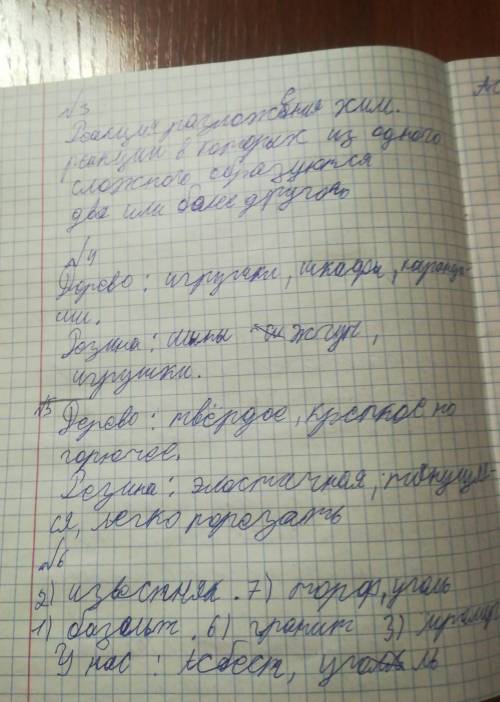 №3
Реакция разложения хим.
реакции в которых из одного
сложного образуются
два или более другого
№4
Дерево: игрушки, шкафы, каранда-
ши.
Резина: шины жгут,
игрушки.
№5 Дерево: твёрдое, крепкое но
горючее.
Резина: эластичная, тянущи
ся, легко порезать
№6
2) известняк. 7) торф, уголь
1) базальт. 6) гранит 3) мрамор
У нас: Асбест, уголь